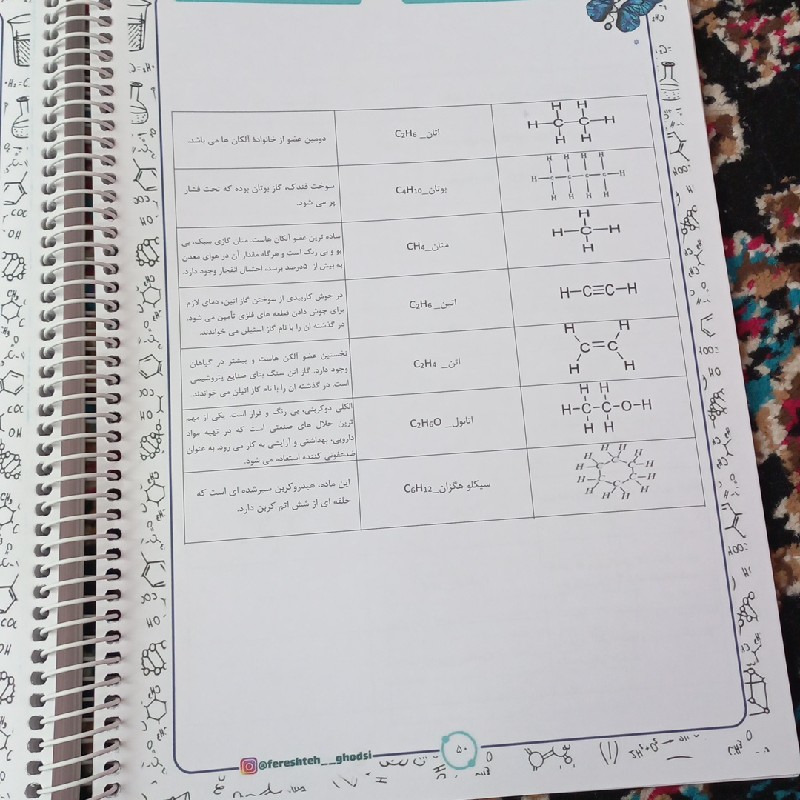 اتان_ C₂H₆
دومین عضو از خانوادهٔ آلکان ها می باشد.
بوتان_C₄H₁₀
سوخت فندک، گاز بوتان بوده که تحت فشار
پر می شود.
متان_CH₄
ساده ترین عضو آلکان هاست. متان گازی سبک، بی
بو و بی رنگ است و هرگاه مقدار آن در هوای معدن
به بیش از ۵درصد برسد، احتمال انفجار وجود دارد.
H-C≡C-H
در جوش کاربیدی از سوختن گاز اتین، دمای لازم
برای جوش دادن قطعه های فلزی تأمین می شود.
در گذشته آن را با نام گاز استیلن می خواندند.
اتن_ C₂H₄
نخستین عضو آلکن هاست و بیشتر در گیاهان
وجود دارد. گاز اتن سنگ بنای صنایع پتروشیمی
است. در گذشته آن را با نام گاز اتیلن می خواندند.
اتانول_ C₂H₆O
الکلی دوکربنی، بی رنگ و فرار است. یکی از مهم
ترین حلال های صنعتی است که در تهیه مواد
دارویی، بهداشتی و آرایشی به کار می رود. به عنوان
ضدعفونی کننده استفاده می شود.
سیکلو هگزان_C₆H₁₂
این ماده، هیدروکربن سیرشده ای است که
حلقه ای از شش اتم کربن دارد.
@fereshteh__ghodsi
۵۰